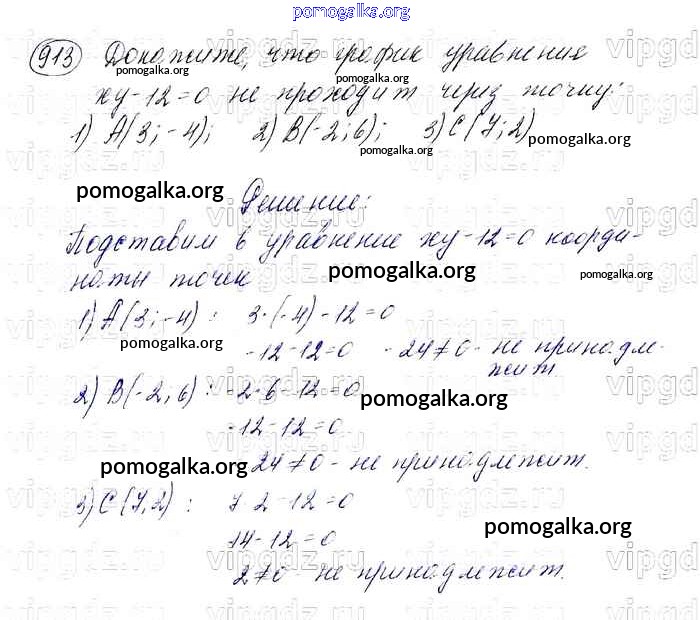 pomogalka.org
913 Докажите, что график уравнения
xy-12=0 не проходит через точку:
1) A(3;-4); 2) B(-2;6); 3) C(7;2)
Решение:
Подставим в уравнение xy-12=0 коорди-
наты точек
1) A(3;-4): 3·(-4)-12=0
-12-12=0 -24≠0- не принадле-
жит
2) B(-2;6): -2·6-12=0
-12-12=0
-24≠0- не принадлежит.
3) C(7;2): 7·2-12=0
14-12=0
2≠0- не принадлежит.
pomogalka.org
pomogalka.org
pomogalka.org
pomogalka.org
pomogalka.org
pomogalka.org
pomogalka.org
pomogalka.org
pomogalka.org
pomogalka.org
pomogalka.org
pomogalka.org